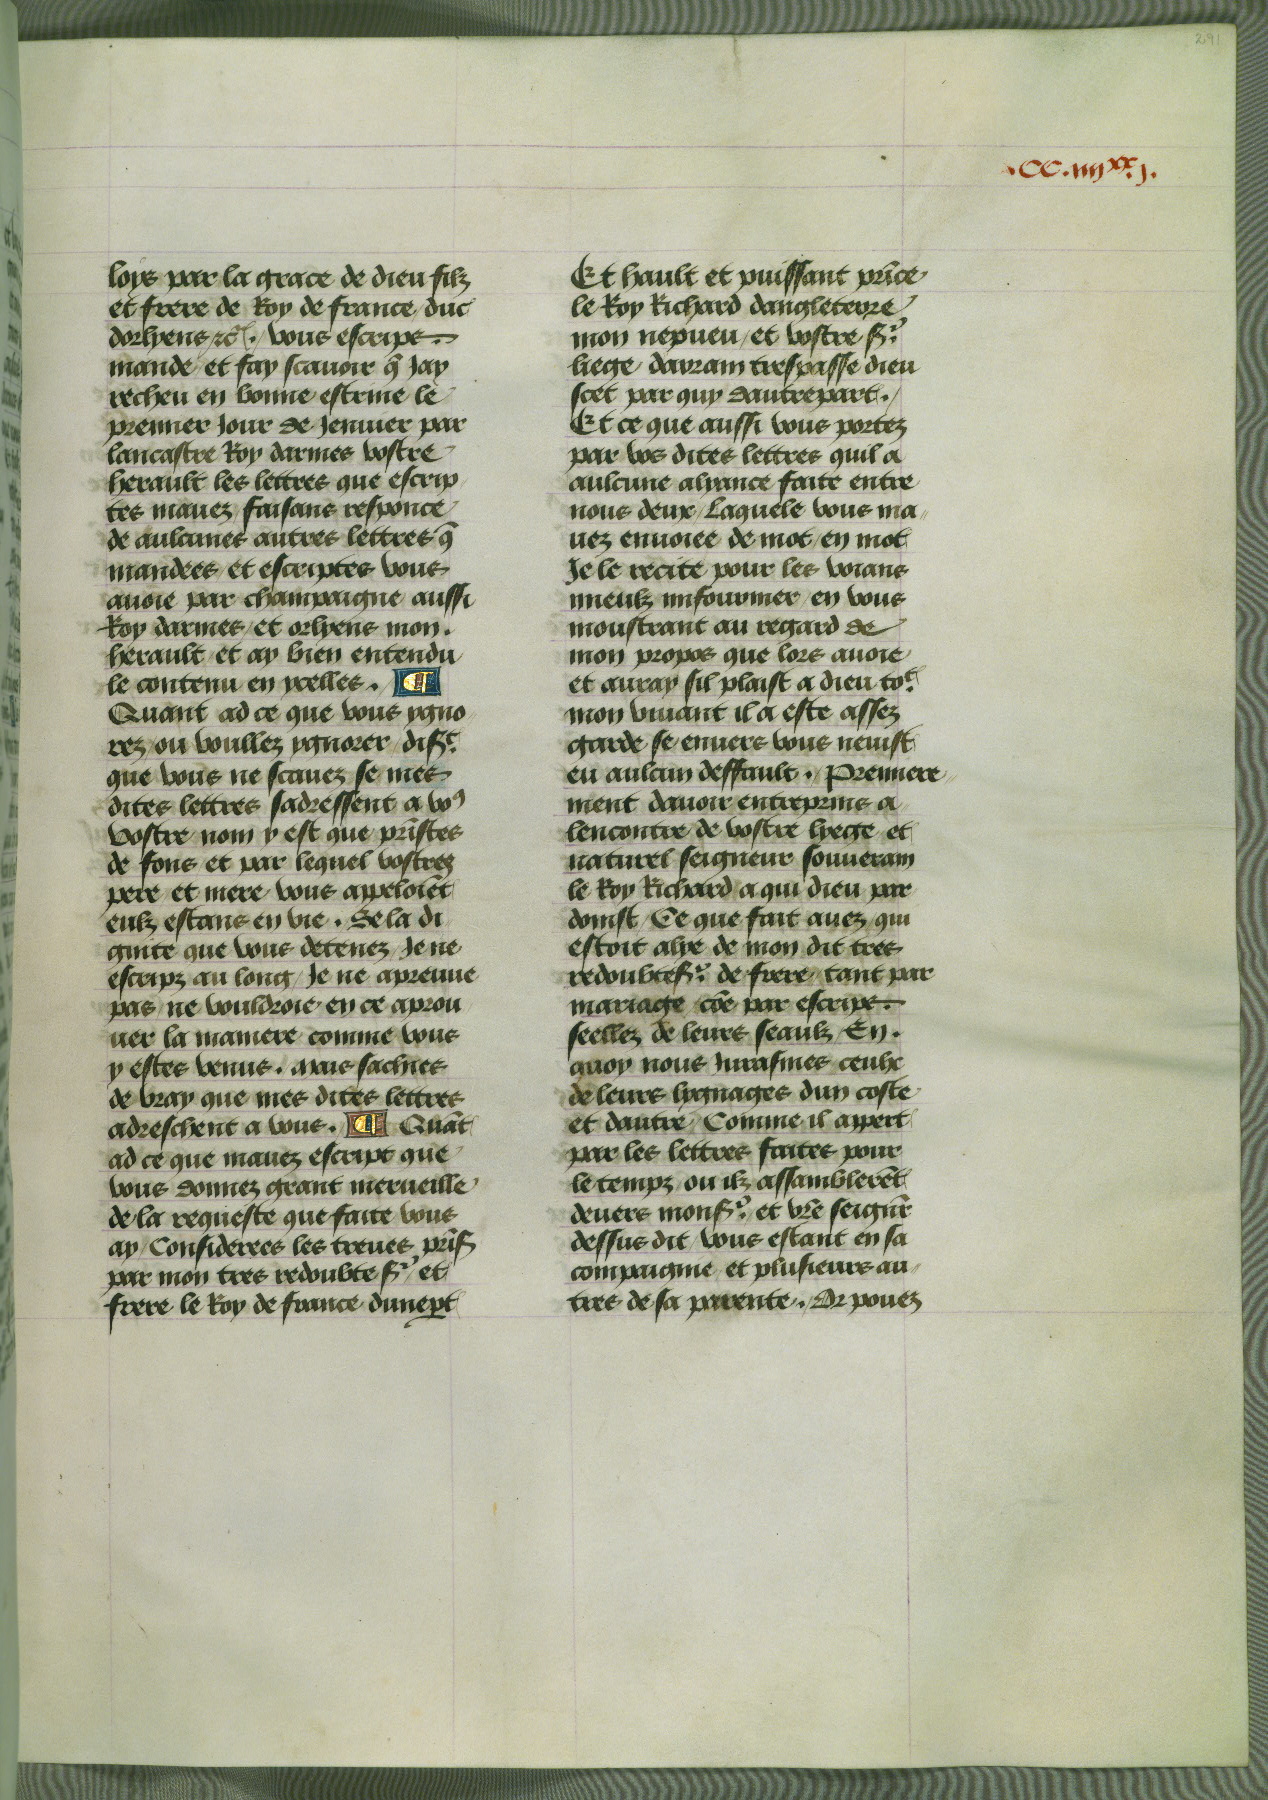 291
.CC.iiijxx.j.
loys par la grace de dieu filz
et frere de Roy de france duc
dorlyens etc. / vous escripz
mande et fay scauoir q̄ Jay
recheu en bonne estrine le
premier Jour de Jenuier par
lancastre Roy darmes vostre
herault les lettres que escrip
tes mauez faisans responce
de aulcunes autres lettres q̄
mandees et escriptes vous
auoie par champaigne aussi
Roy darmes / et orlyens mon.
herault et ay bien entendu
le contenu en ycelles. / ¶
Quant ad ce que vous ygno
rez ou voullez ygnorer / disāt
que vous ne scauez se mes
dites lettres sadressent a voꝰ
vostre nom y est que prīstes
de fons et par lequel vostres
pere et mere vous appeloiēt
eulz estans en vie. De la di
gnite que vous detenez / Je ne
escripz au long / Je ne apreuue
pas ne vouldroie en ce aprou
uer la maniere comme vous
y estes venus. mais sachies
de vray que mes dites lettres
adreschent a vous. / ¶ Quāt
ad ce que mauez escript que
vous donnez grant merueille
de la requeste que faite vous
ay / Considerees les treues prīs
par mon tres redoubte sʳ et
frere le Roy de france dune pt
Et hault et puissant prīce
le Roy Richard dangleterre
mon nepueu / et vostre sʳ
liege darrain trespasse dieu
scet par quy dautre part. /
Et ce que aussi vous portez
par vos dites lettres quil a
aulcune alyance faite entre
nous deux / Laquele vous ma
uez enuoiee de mot en mot
Je le recite pour les voians
mieulz infourmer / en vous
moustrant au regard de
mon propos que lors auoie
et auray sil plaist a dieu toᵗ
mon viuant il a este assez
garde se enuers vous neuist
eu aulcun deffault. / Premiere
ment dauoir entreprins a
lencontre de vostre lyege et
naturel seigneur souuerain
le Roy Richard a qui dieu par
doinst / Ce que fait auez / qui
estoit alye de mon dit tres
redoubte sʳ de frere / tant par
mariage cōe par escripz
seellez de leurs seaulz / En.
quoy nous Jurasmes ceulx
de leurs lygnages dun coste
et dautre / Comme il appert
par les lettres faites pour
le temps ou ilz assamblerēt
deuers monsʳ et vr̄e seignr̄
dessus dit / vous estant en sa
compaignie et plusieurs au
tres de sa parente. / Or pouez